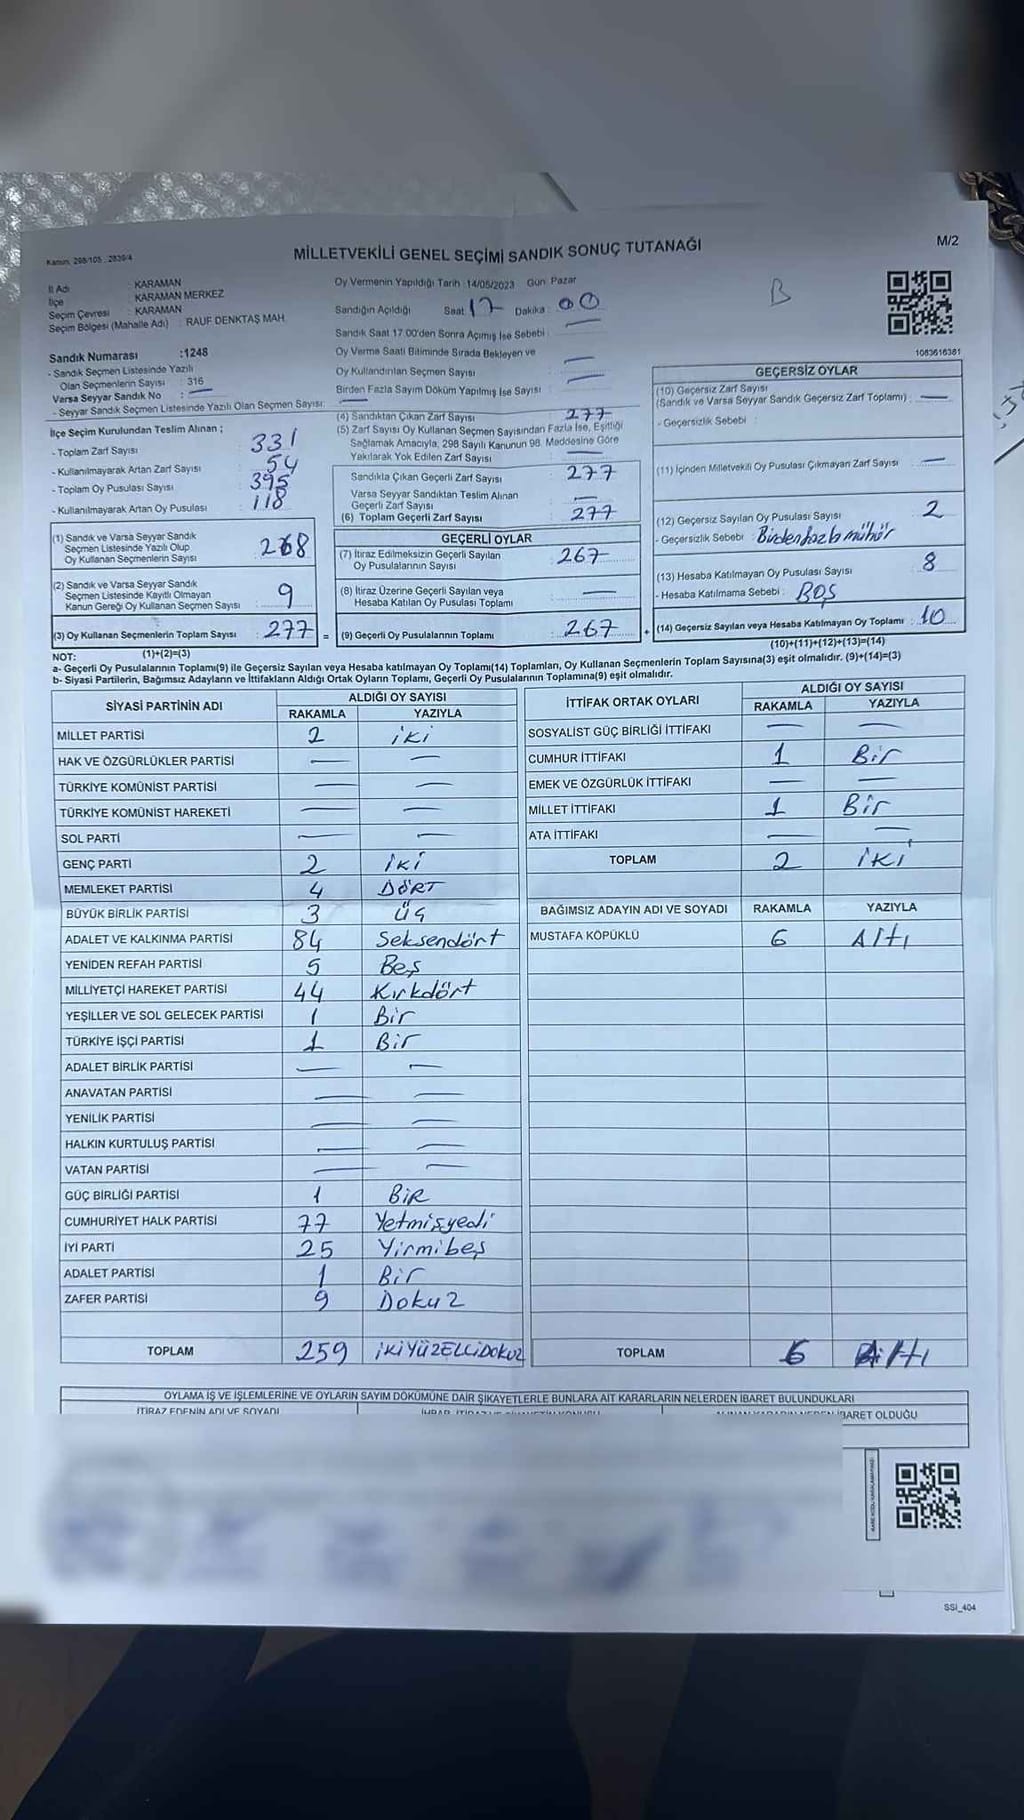 Kanun: 298/105 , 2839/4
MİLLETVEKİLİ GENEL SEÇİMİ SANDIK SONUÇ TUTANAĞI
M/2
İl Adı : KARAMAN
İlçe : KARAMAN MERKEZ
Seçim Çevresi : KARAMAN
Seçim Bölgesi (Mahalle Adı) : RAUF DENKTAŞ MAH.
Oy Vermenin Yapıldığı Tarih :14/05/2023 Gün: Pazar
Sandığın Açıldığı Saat: 17 Dakika : 00
B
Sandık Saat 17.00'den Sonra Açımış İse Sebebi : —
Oy Verme Saati Bitiminde Sırada Bekleyen ve
Oy Kullandırılan Seçmen Sayısı : —
Birden Fazla Sayım Döküm Yapılmış İse Sayısı : —
1083616381
Sandık Numarası :1248
- Sandık Seçmen Listesinde Yazılı
Olan Seçmenlerin Sayısı : 316
Varsa Seyyar Sandık No : —
- Seyyar Sandık Seçmen Listesinde Yazılı Olan Seçmen Sayısı: —
İlçe Seçim Kurulundan Teslim Alınan ;
- Toplam Zarf Sayısı 331
- Kullanılmayarak Artan Zarf Sayısı 54
- Toplam Oy Pusulası Sayısı 395
- Kullanılmayarak Artan Oy Pusulası 118
(1) Sandık ve Varsa Seyyar Sandık
Seçmen Listesinde Yazılı Olup
Oy Kullanan Seçmenlerin Sayısı 268
(2) Sandık ve Varsa Seyyar Sandık
Seçmen Listesinde Kayıtlı Olmayan
Kanun Gereği Oy Kullanan Seçmen Sayısı : 9
(3) Oy Kullanan Seçmenlerin Toplam Sayısı : 277 =
(1)+(2)=(3)
(4) Sandıktan Çıkan Zarf Sayısı 277
(5) Zarf Sayısı Oy Kullanan Seçmen Sayısından Fazla İse, Eşitliği
Sağlamak Amacıyla, 298 Sayılı Kanunun 98. Maddesine Göre
Yakılarak Yok Edilen Zarf Sayısı : —
Sandıkla Çıkan Geçerli Zarf Sayısı 277
Varsa Seyyar Sandıktan Teslim Alınan
Geçerli Zarf Sayısı —
(6) Toplam Geçerli Zarf Sayısı : 277
GEÇERLİ OYLAR
(7) İtiraz Edilmeksizin Geçerli Sayılan
Oy Pusulalarının Sayısı : 267
(8) İtiraz Üzerine Geçerli Sayılan veya
Hesaba Katılan Oy Pusulası Toplamı : —
(9) Geçerli Oy Pusulalarının Toplamı : 267 +
GEÇERSİZ OYLAR
(10) Geçersiz Zarf Sayısı
(Sandık ve Varsa Seyyar Sandık Geçersiz Zarf Toplamı) : —
- Geçersizlik Sebebi :
(11) İçinden Milletvekili Oy Pusulası Çıkmayan Zarf Sayısı : —
(12) Geçersiz Sayılan Oy Pusulası Sayısı : 2
- Geçersizlik Sebebi : Birdenfazla mühür
(13) Hesaba Katılmayan Oy Pusulası Sayısı : 8
- Hesaba Katılmama Sebebi : BOŞ
(14) Geçersiz Sayılan veya Hesaba Katılmayan Oy Toplamı : 10
(10)+(11)+(12)+(13)=(14)
NOT:
a- Geçerli Oy Pusulalarının Toplamı(9) ile Geçersiz Sayılan veya Hesaba katılmayan Oy Toplamı(14) Toplamları, Oy Kullanan Seçmenlerin Toplam Sayısına(3) eşit olmalıdır. (9)+(14)=(3)
b- Siyasi Partilerin, Bağımsız Adayların ve İttifakların Aldığı Oyların Toplamı, Geçerli Oy Pusulalarının Toplamına(9) eşit olmalıdır.
SİYASİ PARTİNİN ADI ALDIĞI OY SAYISI
RAKAMLA YAZIYLA
MİLLET PARTİSİ 2 iki
HAK VE ÖZGÜRLÜKLER PARTİSİ — —
TÜRKİYE KOMÜNİST PARTİSİ — —
TÜRKİYE KOMÜNİST HAREKETİ — —
SOL PARTİ — —
GENÇ PARTİ 2 iki
MEMLEKET PARTİSİ 4 DÖRT
BÜYÜK BİRLİK PARTİSİ 3 üç
ADALET VE KALKINMA PARTİSİ 84 Seksendört
YENİDEN REFAH PARTİSİ 5 Beş
MİLLİYETÇİ HAREKET PARTİSİ 44 Kırkdört
YEŞİLLER VE SOL GELECEK PARTİSİ 1 Bir
TÜRKİYE İŞÇİ PARTİSİ 1 Bir
ADALET BİRLİK PARTİSİ — —
ANAVATAN PARTİSİ — —
YENİLİK PARTİSİ — —
HALKIN KURTULUŞ PARTİSİ — —
VATAN PARTİSİ — —
GÜÇ BİRLİĞİ PARTİSİ 1 BİR
CUMHURİYET HALK PARTİSİ 77 Yetmişyedi
İYİ PARTİ 25 Yirmibeş
ADALET PARTİSİ 1 Bir
ZAFER PARTİSİ 9 Dokuz
TOPLAM 259 İKİYÜZELLİDOKUZ
İTTİFAK ORTAK OYLARI ALDIĞI OY SAYISI
RAKAMLA YAZIYLA
SOSYALİST GÜÇ BİRLİĞİ İTTİFAKI — —
CUMHUR İTTİFAKI 1 Bir
EMEK VE ÖZGÜRLÜK İTTİFAKI — —
MİLLET İTTİFAKI 1 Bir
ATA İTTİFAKI — —
TOPLAM 2 iki
BAĞIMSIZ ADAYIN ADI VE SOYADI RAKAMLA YAZIYLA
MUSTAFA KÖPÜKLÜ 6 Altı
TOPLAM 6 Altı
OYLAMA İŞ VE İŞLEMLERİNE VE OYLARIN SAYIM DÖKÜMÜNE DAİR ŞİKAYETLERLE BUNLARA AİT KARARLARIN NELERDEN İBARET BULUNDUKLARI
İTİRAZ EDENİN ADI VE SOYADI
İBARET OLDUĞU
SSİ_404